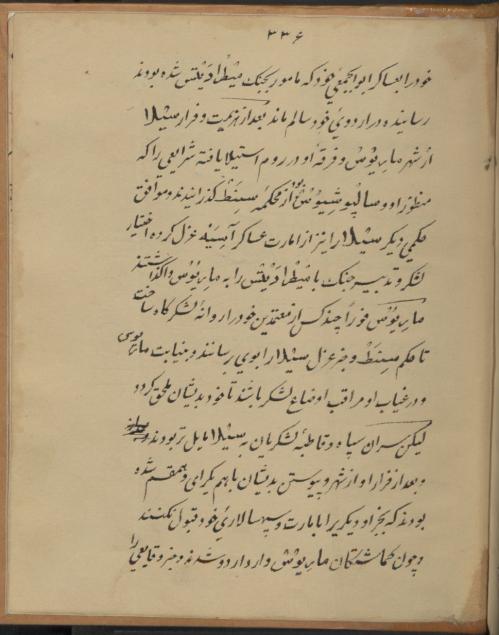 ۳۳۶
خود را بعساکر ابوالجمعی خود که مامور بجنک میثطرادیتس شده بودند
رسانیده در اردوی خود سالم ماند بعد از هزیمت و فرار سیللا
از شهر ماریوس و فرقهٔ او در روم استیلا یافته شرایعی را که
منظور او و سالپوشیوس بود از محکمه سِنِط گذرانیدند و موافق
حکمی دیکر سیللا را نیز از امارت عساکر آسیه عزل کرده اختیار
لشکر و تدبیر جنک با میثطرادیتس را به ماریوس واگذاشتند
ماریوس فوراً چند کس از معتمدین خود را روانهٔ لشکرگاه ساخت
تا حکم سِنِط و خبر عزل سیللا را بوی رسانند و بنیابت ماریوس
و در غیاب او مراقب اوضاع لشکر باشند تا خود بدیشان ملحق کردد
لیکن سران سپاه و قاطبهٔ لشکریان به سیللا مایل تر بودند
و بعد از فرار او از شهر و پیوستن بدیشان باهم یکرای و همقسم شده
بودند که بجز او دیکریرا بامارت و سپهسالاری خود قبول نکنند
و چون کماشتکان ماریوس وارد اردو شدند و خبر وقایعی را